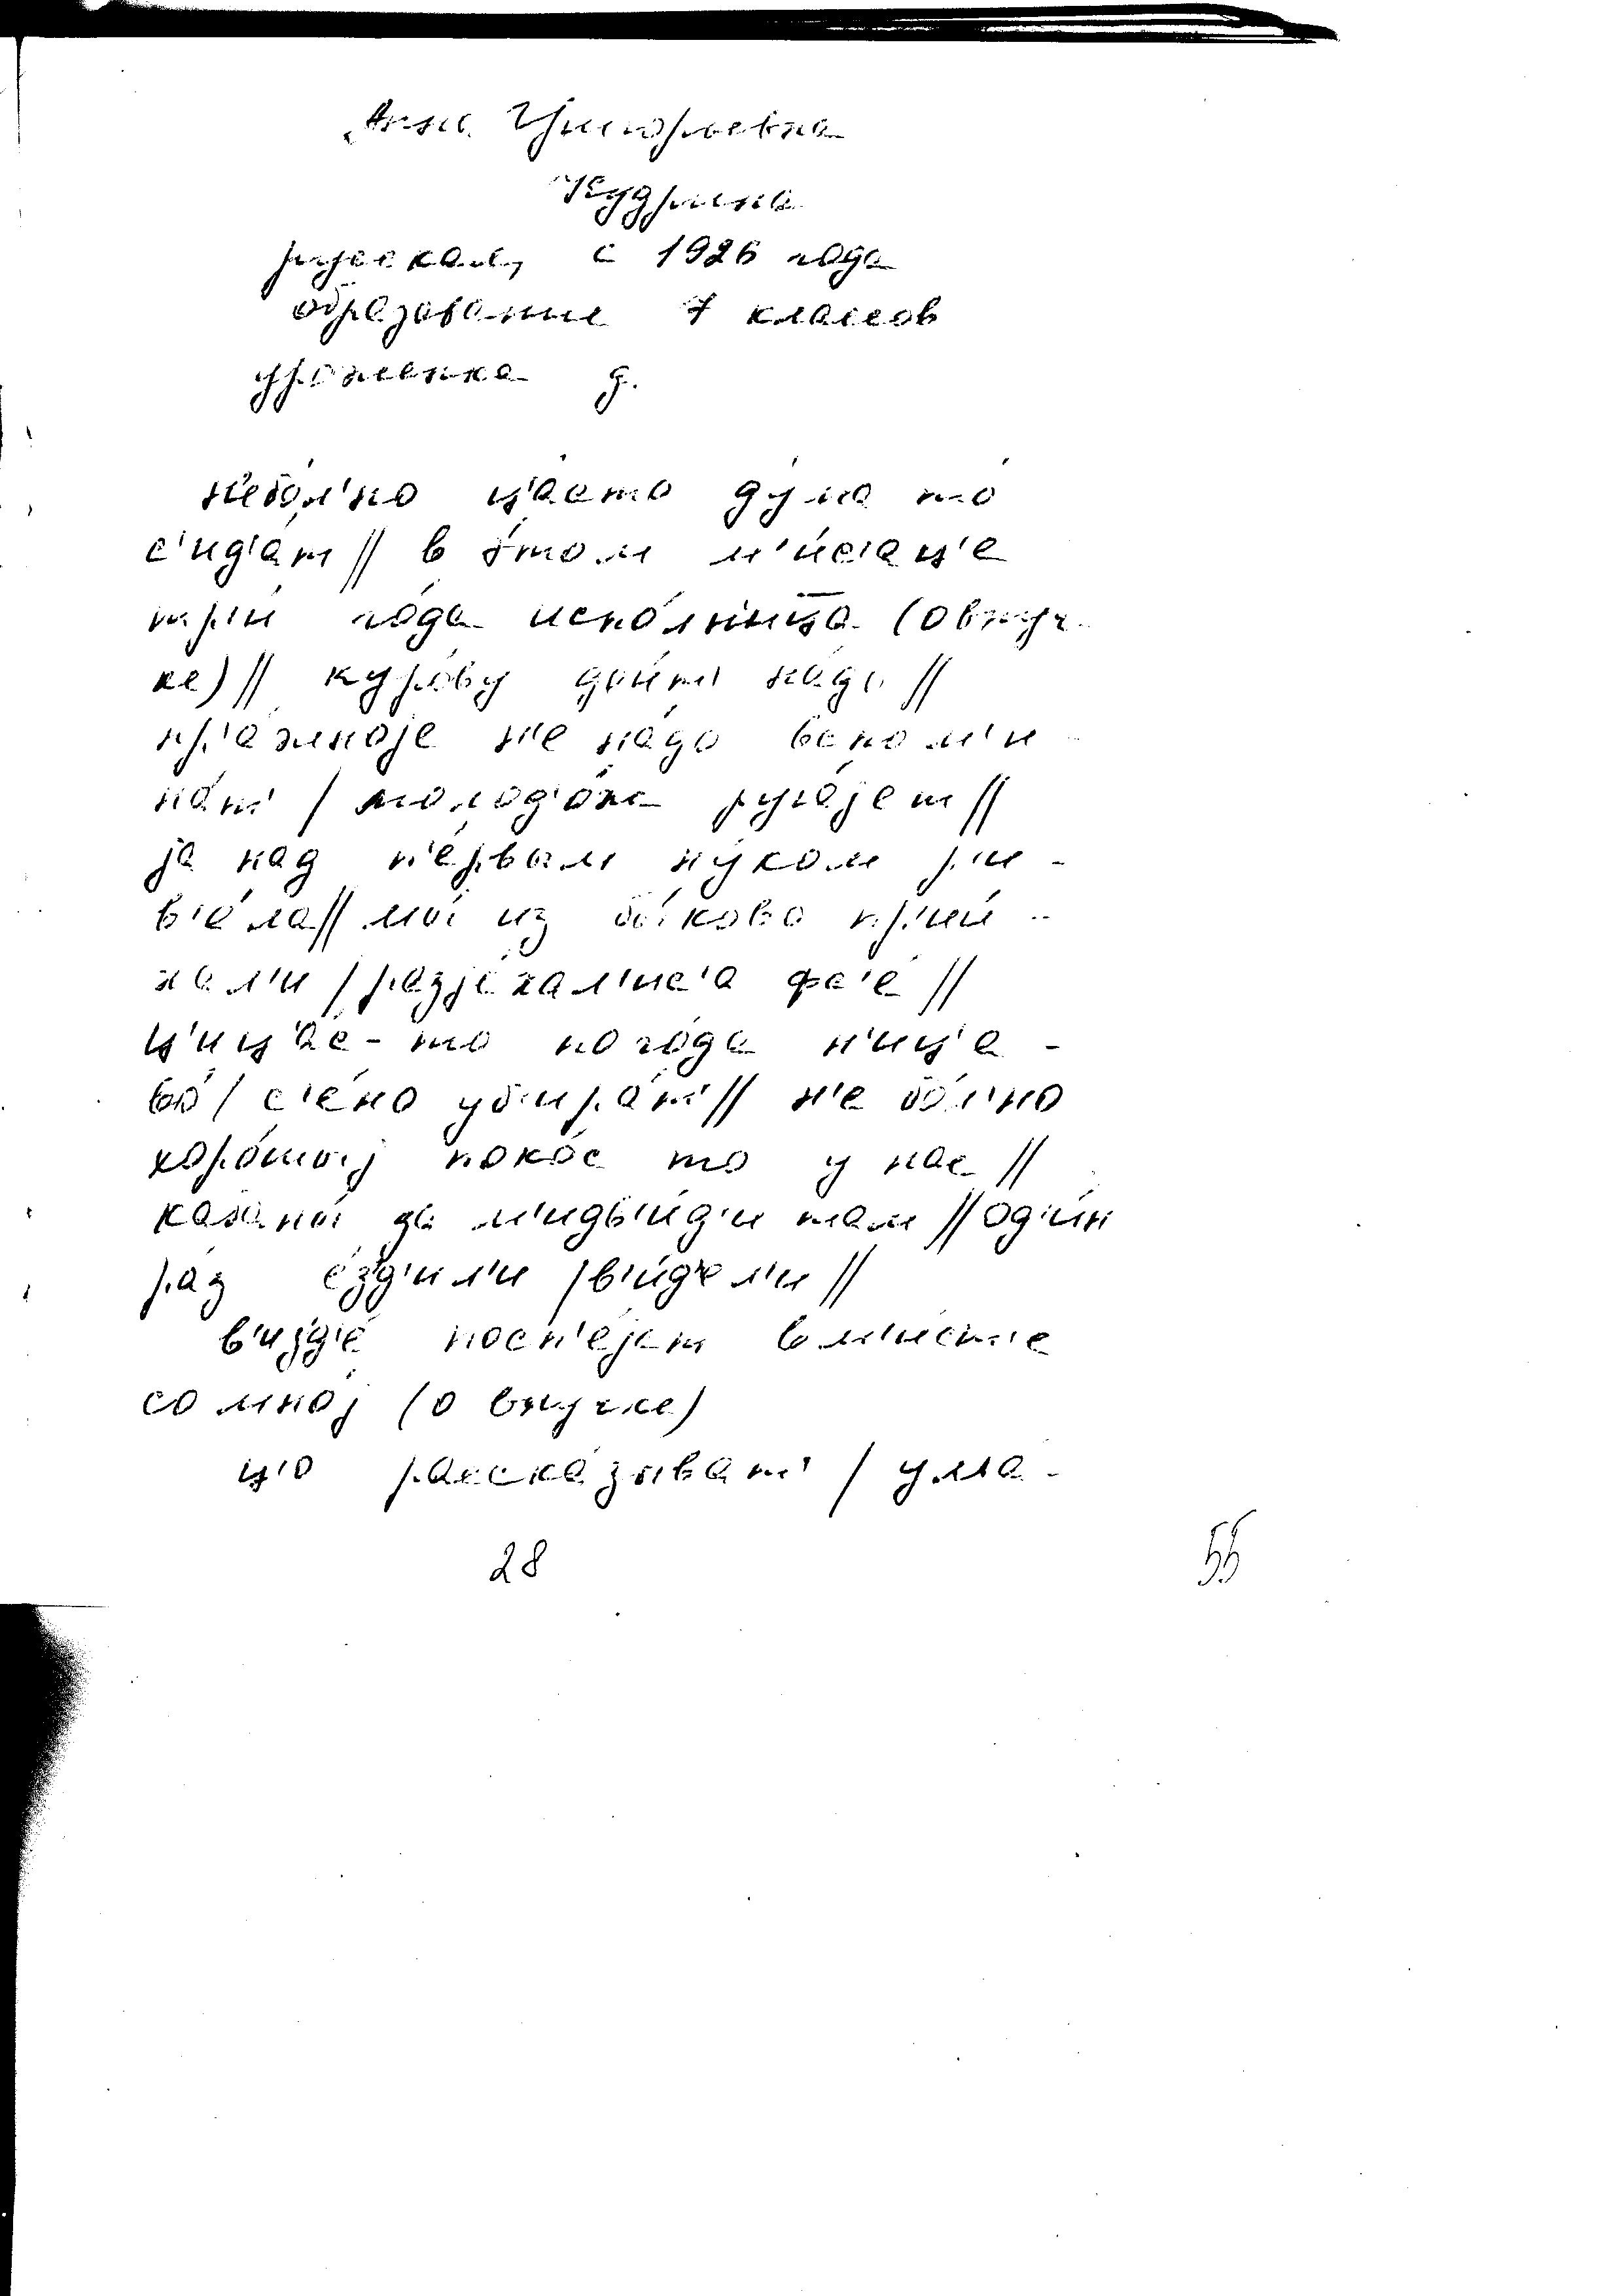 Анна Григорьевна
Кудрина
русская, с 1926 года
образование 7 классов
д.
н'ебо́л'но ц'а́сто дума то́
с'ид'а́т // в э́том м'и́с'ац'е
тр'и го́да испо́лница (о внуч-
ке) // куро́ву дои́т' на́до //
пр'а́жноjе н'е на́до вспом'и-
на́т' / молод'о́ж руга́jет //
jа над п'е́рвым ну́ком р'и-
в'е́ла // мы́ из бы́ково при́и-
хал'и / разjе́хал'ис'а фс'е́ //
ц'иц'а́с-то пого́да н'иц'а-
во́ / с'е́но убира́т' // н'е бо́л'но
хоро́шыj поко́с то у нас //
кабаны́ да м'идв'и́д'и там // од'и́н
ра́з е́зд'ил'и / в'и́дел'и //
в'изд'е́ посп'е́jет вм'и́ст'е
со мноj (о внучке)
ц'о расска́зыват' / ума-
28
55